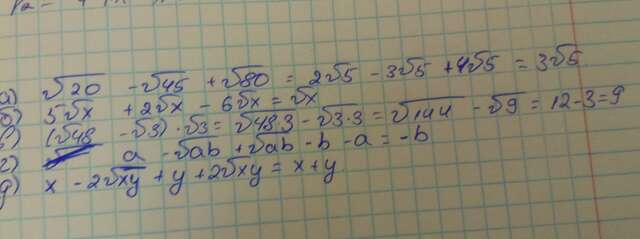 а) √20 - √45 + √80 = 2√5 - 3√5 + 4√5 = 3√5
б) 5√x + 2√x - 6√x = √x
в) (√48 - √3) · √3 = √48·3 - √3·3 = √144 - √9 = 12 - 3 = 9
г) a - √ab + √ab - b - a = -b
д) x - 2√xy + y + 2√xy = x + y